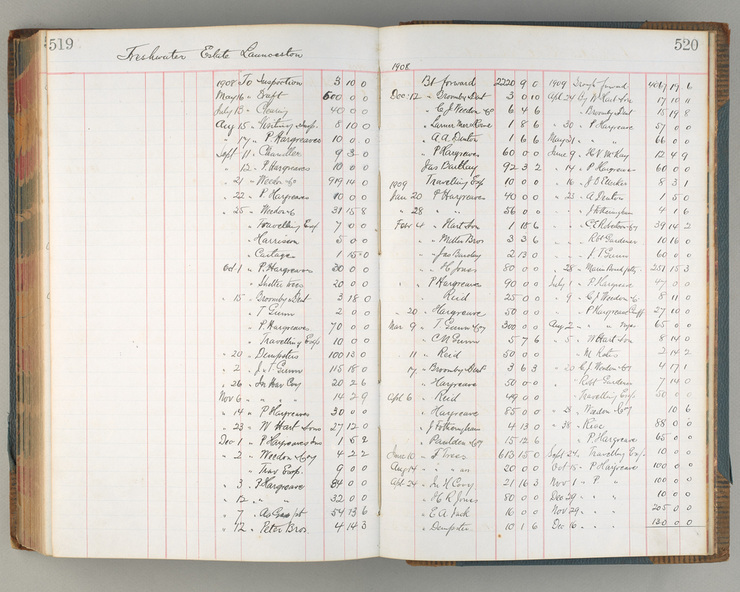 519
Freshwater Estate Launceston
1908 To Inspection 3 10 0
May 16 " Exept 500 0 0
July 13 " Clearing 40 0 0
Aug 15 " Visiting Insp. 8 10 0
" 17 " P Hargreaves 10 0 0
Sept 11 " Chandler 9 3 0
" 12 " P. Hargreaves 10 0 0
" 21 " Weedon & Co 919 14 0
" 22 " P Hargreaves 10 0 0
" 25 " Weedon & Co 31 15 8
" Travelling Exps 7 0 0
" Harrison 5 0 0
" Cartage 1 15 0
Oct 1 " P. Hargreaves 30 0 0
" Shelter Trees 20 0 0
" 15 " Bromby & Dent 3 18 0
" T Gunn 2 0 0
" P. Hargreaves 70 0 0
" Travelling Exps 10 0 0
" 20 " Dempsters 100 13 0
" 2 " J & T Gunn 115 18 0
" 26 " Coy 20 2 6
Nov 6 " " " 14 2 9
" 14 " P Hargreaves 30 0 0
" 23 " W Hart & Sons 27 12 0
Dec 1 " P. Hargreaves 1 5 2
" 2 " Weedon & Coy 4 2 2
" Trav Exps. 9 0 0
" 3 " P. Hargreave 84 0 0
" 12 " " " 32 0 0
" 7 " 54 13 6
" 12 " Peter Bros. 4 14 3
520
1908
Bt forward 2220 9 0
Dec 12 " Bromby & Dent 3 0 10
" C J Weedon & Co 6 4 6
" 1 8 6
" A A Denton 1 6 6
" P Hargreaves 60 0 0
Jas Barclay 92 3 2
1909 Travelling Exp 10 0 0
Jan 20 " P Hargreaves 40 0 0
" 28 " " " 56 0 0
Feb 4 " Hart & Son 1 15 6
" Miller Bros 3 3 6
" Jas Barclay 2 13 0
" H Jones 80 0 0
" P Hargreaves 90 0 0
" Reid 25 0 0
" 20 " Hargreave 50 0 0
Mar 9 " T Gunn & Coy 300 0 0
" C N Gunns 5 7 6
" 11 " Reid 50 0 0
" 17 " Bromby & Dent 3 6 3
" Hargreave 50 0 0
Apl 6 " Reid 49 0 0
" Hargreave 85 0 0
" J Fotheringham 4 13 0
" Paulden & Coy 15 12 6
June 10 " Trees 613 15 0
Aug 14 " " " 20 0 0
Apl 24 " Coy 21 16 3
" H R Jones 80 0 0
" E A Jack 10 0 0
" Dempster 10 1 6
1909 Brought forward 4067 19 6
Apl 24 By W Hart & Son 17 10 11
" Bromby & Dent 15 19 8
" 30 " P Hargreave 57 0 0
May 21 " " " 66 0 0
June 9 " H V McKay 12 4 9
" 14 " P Hargreave 60 0 0
" 16 " 8 3 1
" 25 " A Denton 1 5 0
" J Fotheringham 4 1 6
" 39 14 2
" Robt Gardner 10 16 0
" J. T Gunn 60 0 0
" 28 " 251 15 3
July 1 " P Hargreave 47 0 0
" 9 " C J Weedon & Co 8 11 0
" P Hargreave 27 10 0
Aug 2 " " 65 0 0
" 5 " W Hart & Son 8 14 0
" 2 14 2
" 20 " C J Weedon & Coy 4 17 1
" Robt Gardner 7 14 0
" Travelling Exps 50 0 0
" 28 " Weedon & Coy 10 6
" 28 " 88 0 0
" P Hargreave 65 0 0
Sept 24 " Travelling Exps. 10 0 0
Oct 15 " P Hargreave 100 0 0
Nov 1 " P " 100 0 0
Dec 29 " " " 10 0 0
Nov 29 " " " 205 0 0
Dec 16 " " " 130 0 0